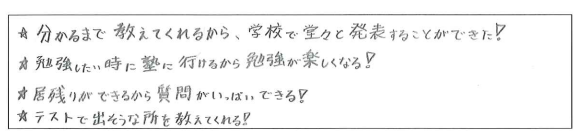 ☆ 分かるまで教えてくれるから、学校で堂々と発表することができた!
☆ 勉強したい時に塾に行けるから勉強が楽しくなる!
☆ 居残りができるから質問がいっぱいできる!
☆ テストで出そうな所を教えてくれる!!